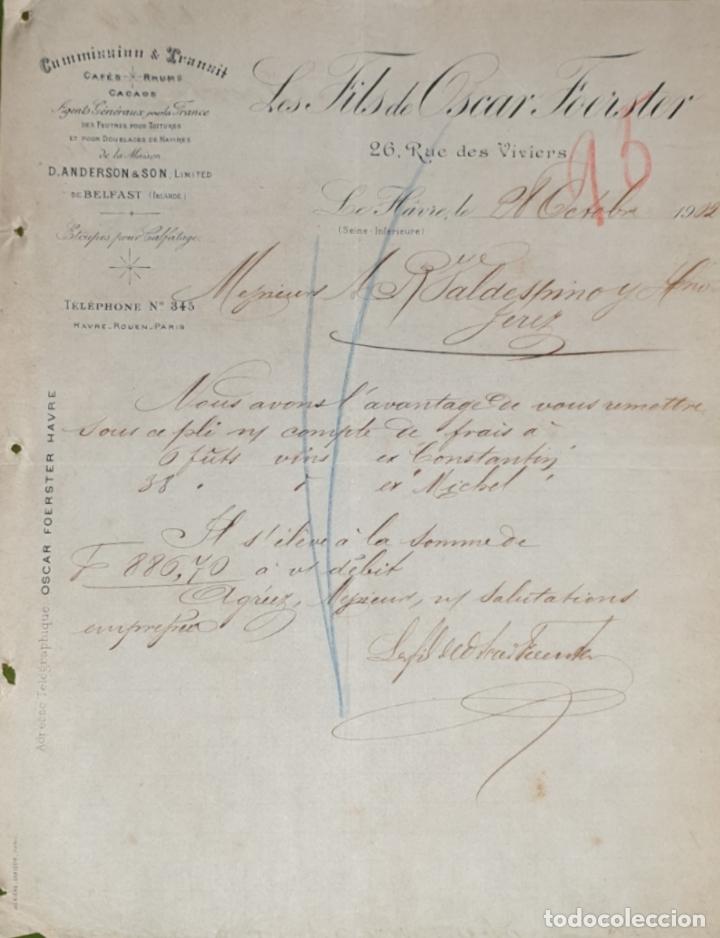 Commission & Transit
CAFÉS RHUMS
CACAOS
Agents Généraux pour la France
DES FEUTRES POUR TOITURES
ET POUR DOUBLAGES DE NAVIRES
de la Maison
D. ANDERSON & SON, LIMITED
DE BELFAST (IRLANDE)
Etoupes pour Calfatage
TÉLÉPHONE No 345
HAVRE_ROUEN_PARIS
Adresse Télégraphique: OSCAR FOERSTER HAVRE
Les Fils de Oscar Foerster
26, Rue des Viviers
95
Le Hâvre, le 28 Octobre 1902
(Seine-Inférieure)
Messieurs A R Valdespino y Hno
Jerez
Nous avons l'avantage de vous remettre
sous ce pli n/ compte de frais à
6 fûts vins ex "Constantin"
38 " " ex "Michel"
Il s'élève à la somme de
F 886,70 à v/ débit
Agréez, Messieurs, n/ salutations
empressées
Les fils de Oscar Foerster
todocoleccion.net